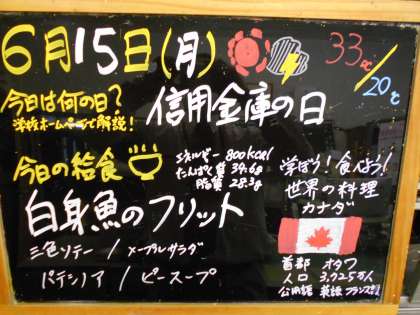 6月15日(月)
33℃/20℃
今日は何の日?
学校ホームページで解説!
信用金庫の日
今日の給食
エネルギー 800kcal
たんぱく質 34.6g
脂質 28.3g
白身魚のフリット
三色ソテー / メープルサラダ
パテシノア / ピースープ
学ぼう!食べよう!
世界の料理
カナダ
首都 オタワ
人口 3,725万人
公用語 英語 フランス語